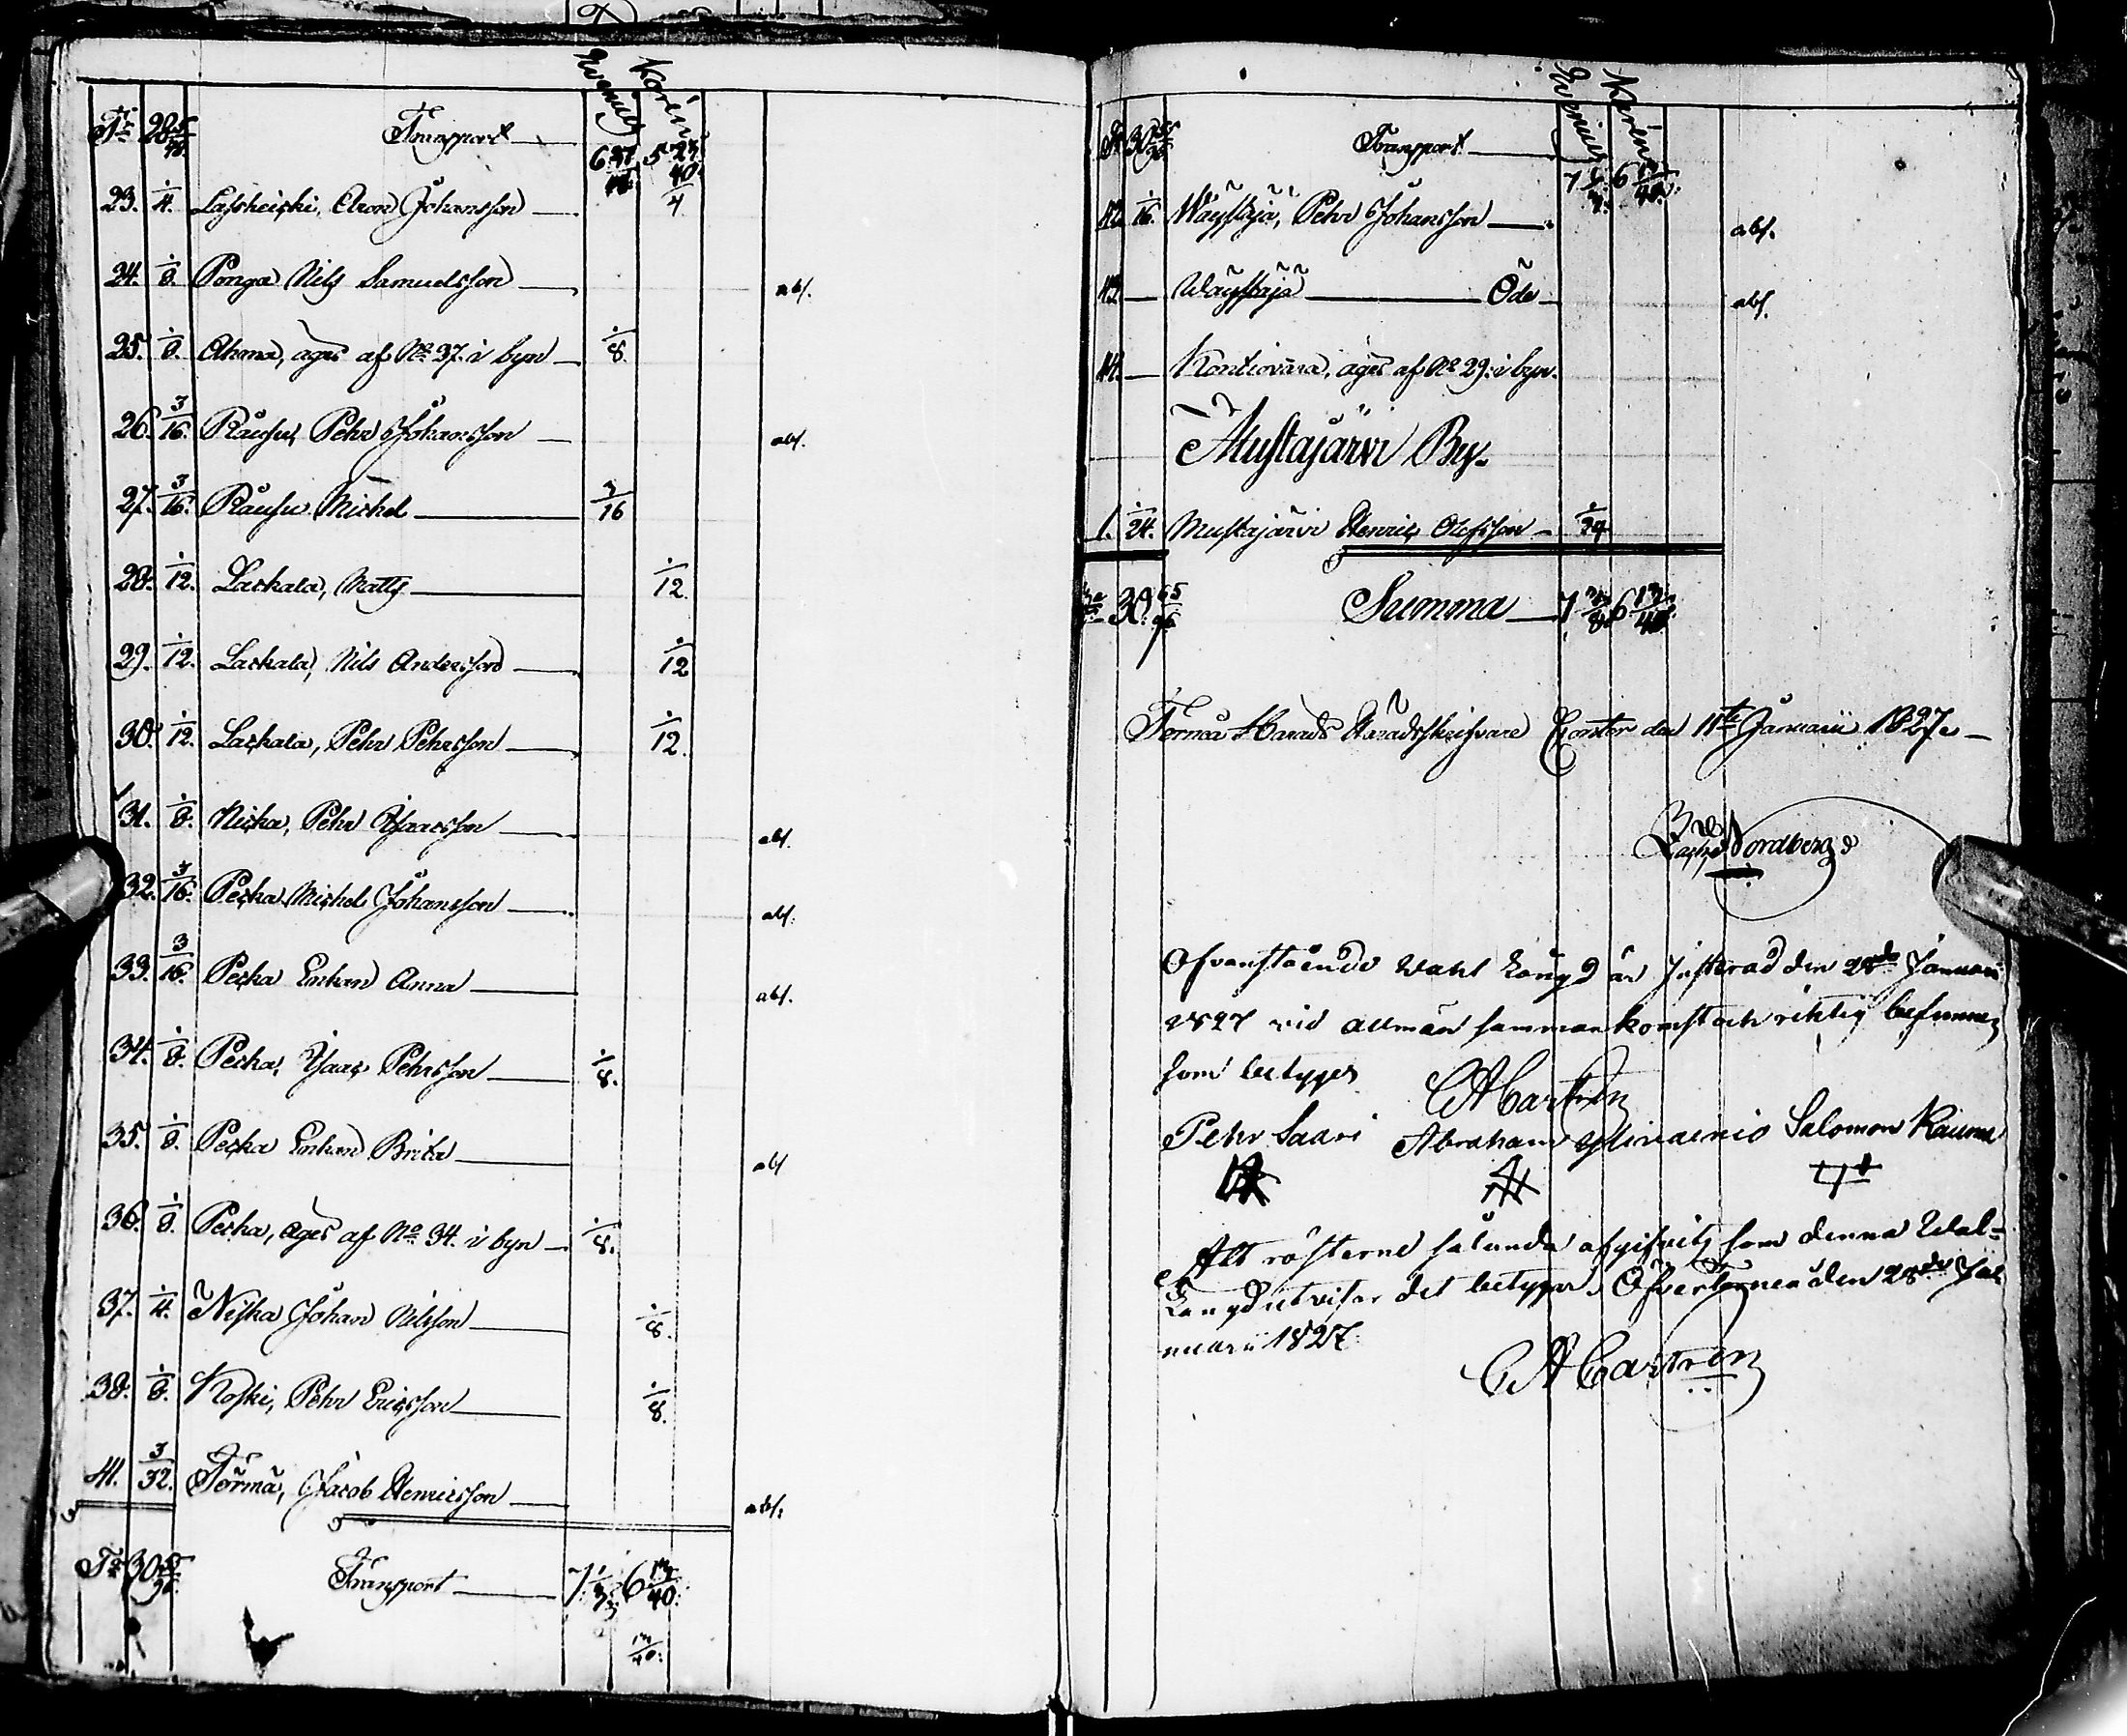 Transport
23. 1/4. Lassheicki, Aron Johansson
24. 1/8. Ponga Nils Samuelsson abs.
25. 1/8. Ahma, äges af No 37. i byn 1/8.
26. 3/16. Rausu, Pehr Johansson abs.
27. 3/16. Rausu Michel 3/16
28. 1/12. Laskala, Matts 1/12.
29. 1/12. Laskala, Nils Andersson 1/12
30. 1/12. Laskala, Pehr Pehrsson 1/12.
31. 1/8. Niska, Pehr Isacsson abs.
32. 3/16. Pecka Michel Johansson abs.
33. 3/16. Pecka Enkan Anna abs.
34. 1/8. Pecka, Isaac Pehrsson 1/8.
35. 1/8. Pecka Enkan Brita abs
36. 1/8. Pecka, äges af No 34. i byn 1/8.
37. 1/4. Niska Johan Nilsson 1/8.
38. 1/8. Koski, Pehr Ericsson 1/8.
41. 3/32. Törmä, Jacob Henricsson abs.
Transport 6 13/40.
13/40.
Transport
42. 1/16. Wäystäjä, Pehr Johansson abs.
43. Wäystäjä Öde abs.
44. Kontiovara, äges af No 29. i byn.
Mustajärvi By.
1. 1/24. Mustajärvi Henric Olofsson 1/24
30. 65/96 Summa 7 3/8. 6 13/40.
Torneå Härads Häradsskrifvare Contor den 11te Januarii 1827.
Nordberg
Ofvanstående Wahl Längd är Justerad den 28de Januarii
1827 vid allmän sammankomst och riktig befunnen
som betygas CACastrén
Pehr Saari Abraham Ylinaenio Salomon Rauma
Att rösterne sålunda afgifvits som denna Wal=
Längd utvisar det betygar. Öfvertorneå den 28de Ja
nuarii 1827.
CACastrén